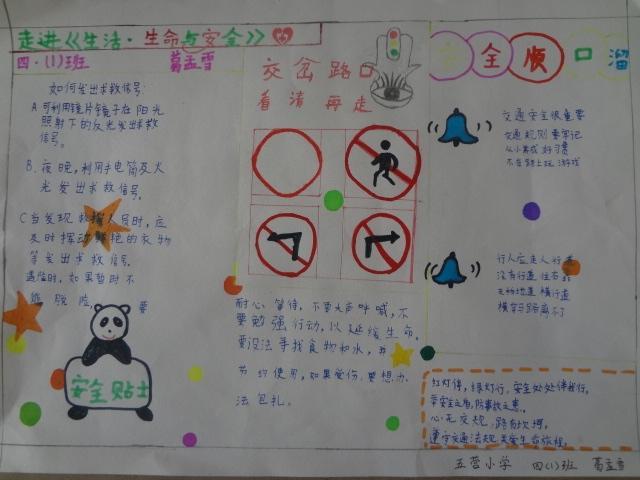 走进《生活·生命与安全》
四·(1)班 葛孟雪
如何发出求救信号:
A.可利用镜片镜子在阳光
照射下的反光发出求救
信号。
B.夜晚,利用手电筒及火
光发出求救信号。
C当发现救援人员时,应
及时挥动鲜艳的衣物
等发出求救信号。
遇险时,如果暂时不
能脱险 要
安全贴士
交岔路口
看清再走
耐心等待,不要大声呼喊,不
要勉强行动,以延缓生命,
要设法寻找食物和水,并
节约使用,如果受伤,要想办
法包扎。
安全顺口溜
交通安全很重要
交通规则要牢记
从小养成好习惯
不在路上玩游戏
行人应走人行道
没有行道往右靠
天桥地道横行道
横穿马路离不了
红灯停,绿灯行,安全处处伴我行。
心无交规,路有坎坷。
遵守交通法规,关爱生命旅程。
五营小学 四(1)班 葛孟雪